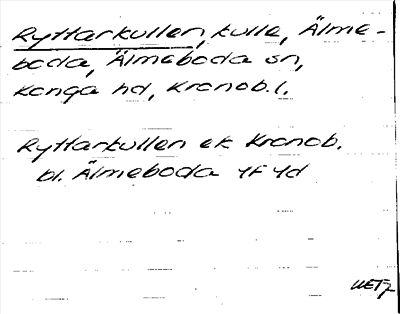 Ryttarkullen, kulle, Älme-
boda, Älmeboda sn,
Konga hd, Kronob. l.
Ryttarkullen ek Kronob.
bl. Älmeboda 4F 4d